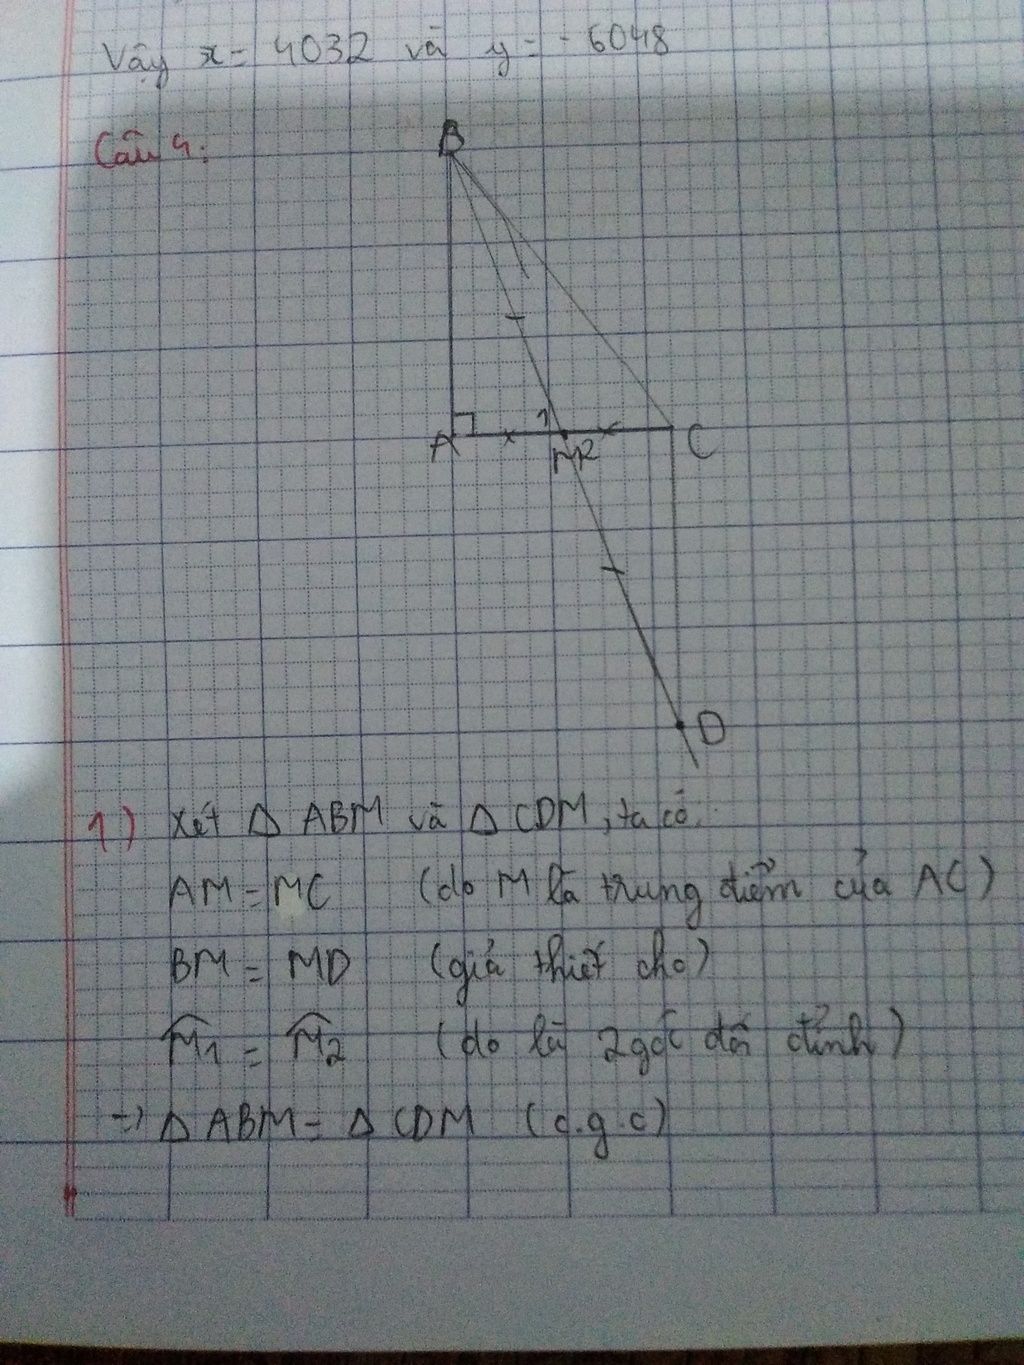 Vậy x = 4032 và y = -6048
Câu 4:
B
A
1
M2
C
D
1) Xét Δ ABM và Δ CDM, ta có:
AM = MC (do M là trung điểm của AC)
BM = MD (giả thiết cho)
M̂1 = M̂2 (do là 2 góc đối đỉnh)
=> Δ ABM = Δ CDM (c.g.c)